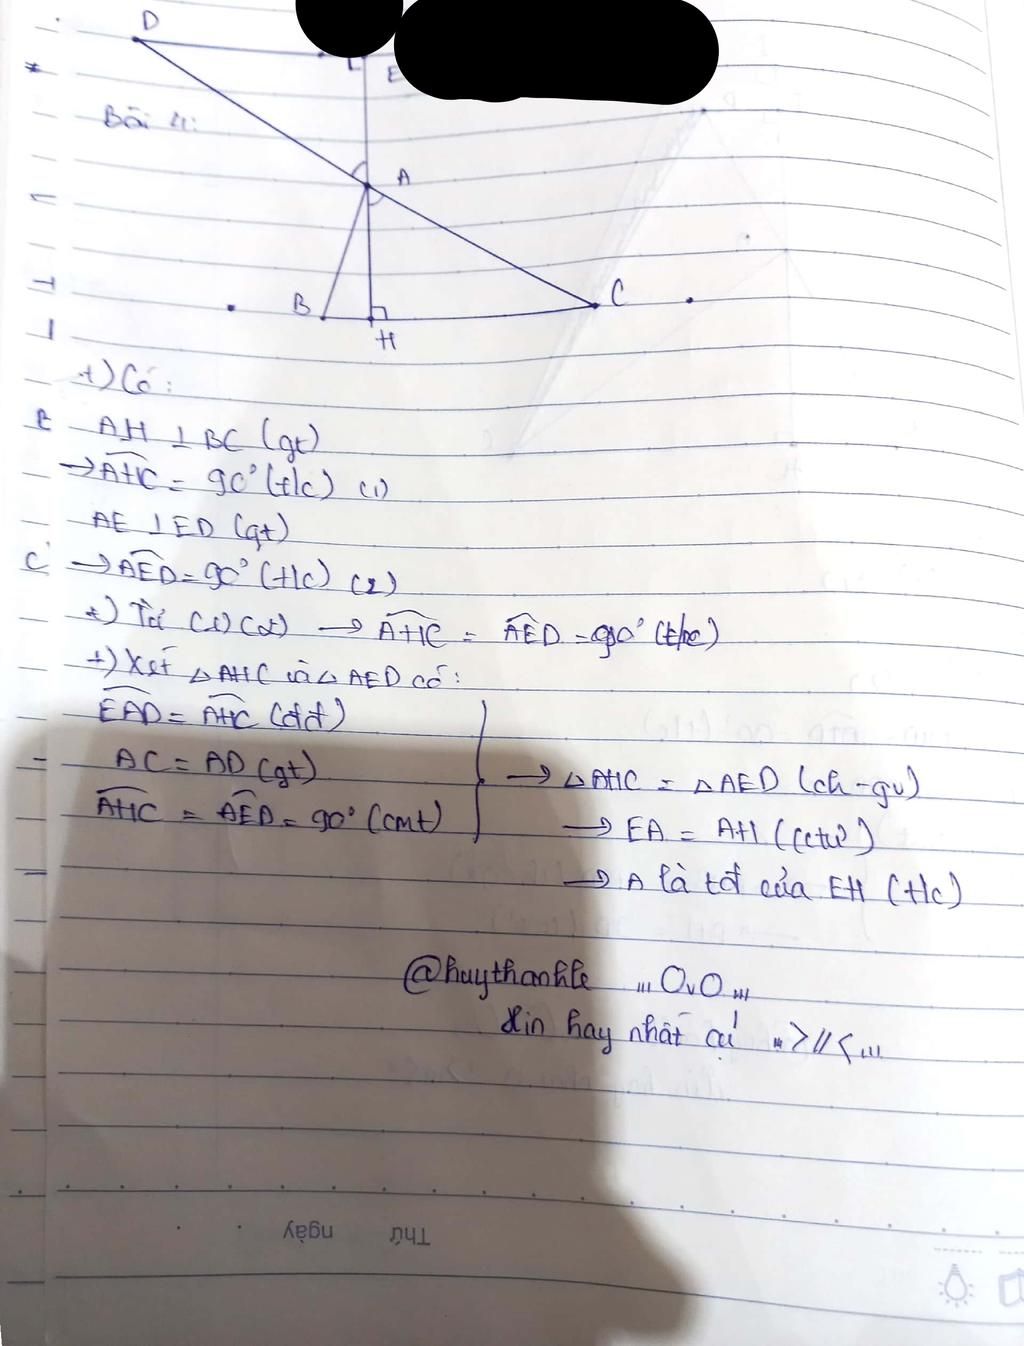 D
E
Bài 4:
A
B
C
H
+) Có:
AH ⊥ BC (gt)
→ AHC = 90° (t/c) (1)
AE ⊥ ED (gt)
→ AED = 90° (t/c) (2)
+) Từ (1) (2) → AHC = AED = 90° (t/c)
+) Xét △ AHC và △ AED có:
EAD = AHC (đđ)
AC = AD (gt)
AHC = AED = 90° (cmt)
→ △ AHC = △ AED (ch - gv)
→ EA = AH (cctư)
→ A là tđ của EH (t/c)
@huythanhle ,,,OvO,,,
Xin hay nhất cự ,,,>//<,,,
Thứ ngày